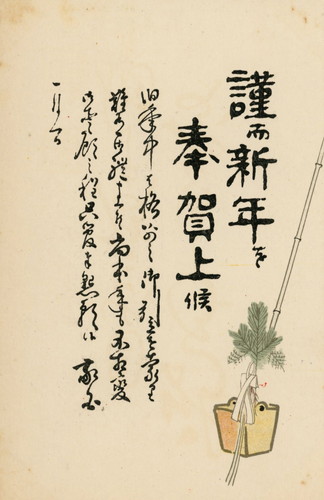 謹而新年を
奉賀上候
旧年中は格別之御引立を蒙り
難有御礼申上候尚本年も不相変
御愛顧之程只管奉懇願候
敬白
一月一日